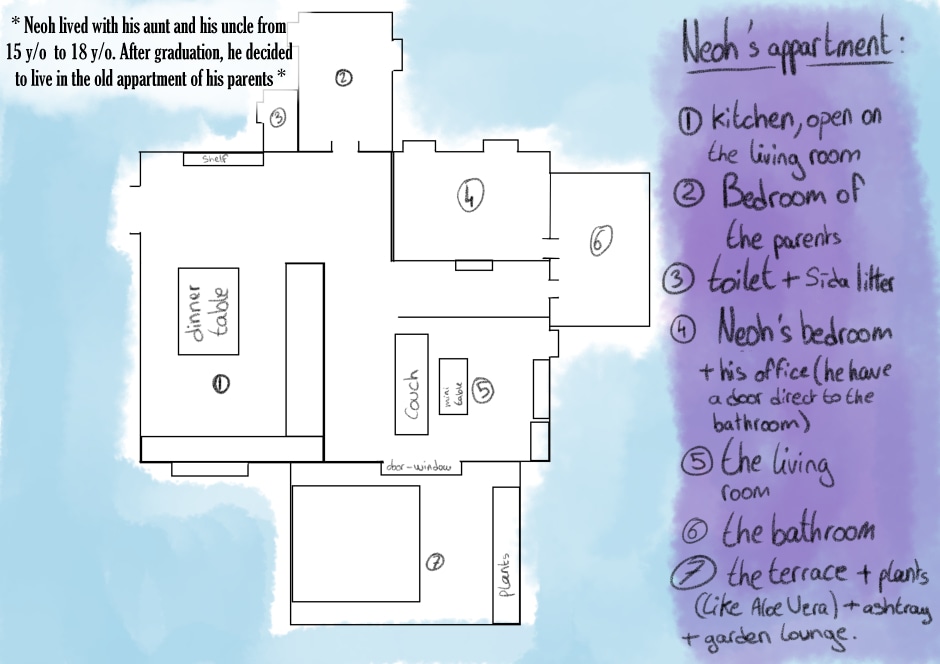 * Neoh lived with his aunt and his uncle from
15 y/o to 18 y/o. After graduation, he decided
to live in the old appartment of his parents *
Neoh's appartment :
① kitchen, open on
the living room
② Bedroom of
the parents
③ toilet + Sida litter
④ Neoh's bedroom
+ his office (he have
a door direct to the
bathroom)
⑤ the living
room
⑥ the bathroom
⑦ the terrace + plants
(Like Aloe Vera) + ashtray
+ garden lounge.
②
③
Shelf
④
⑥
dinner
table
①
Couch
mini
table
⑤
door-window
⑦
plants